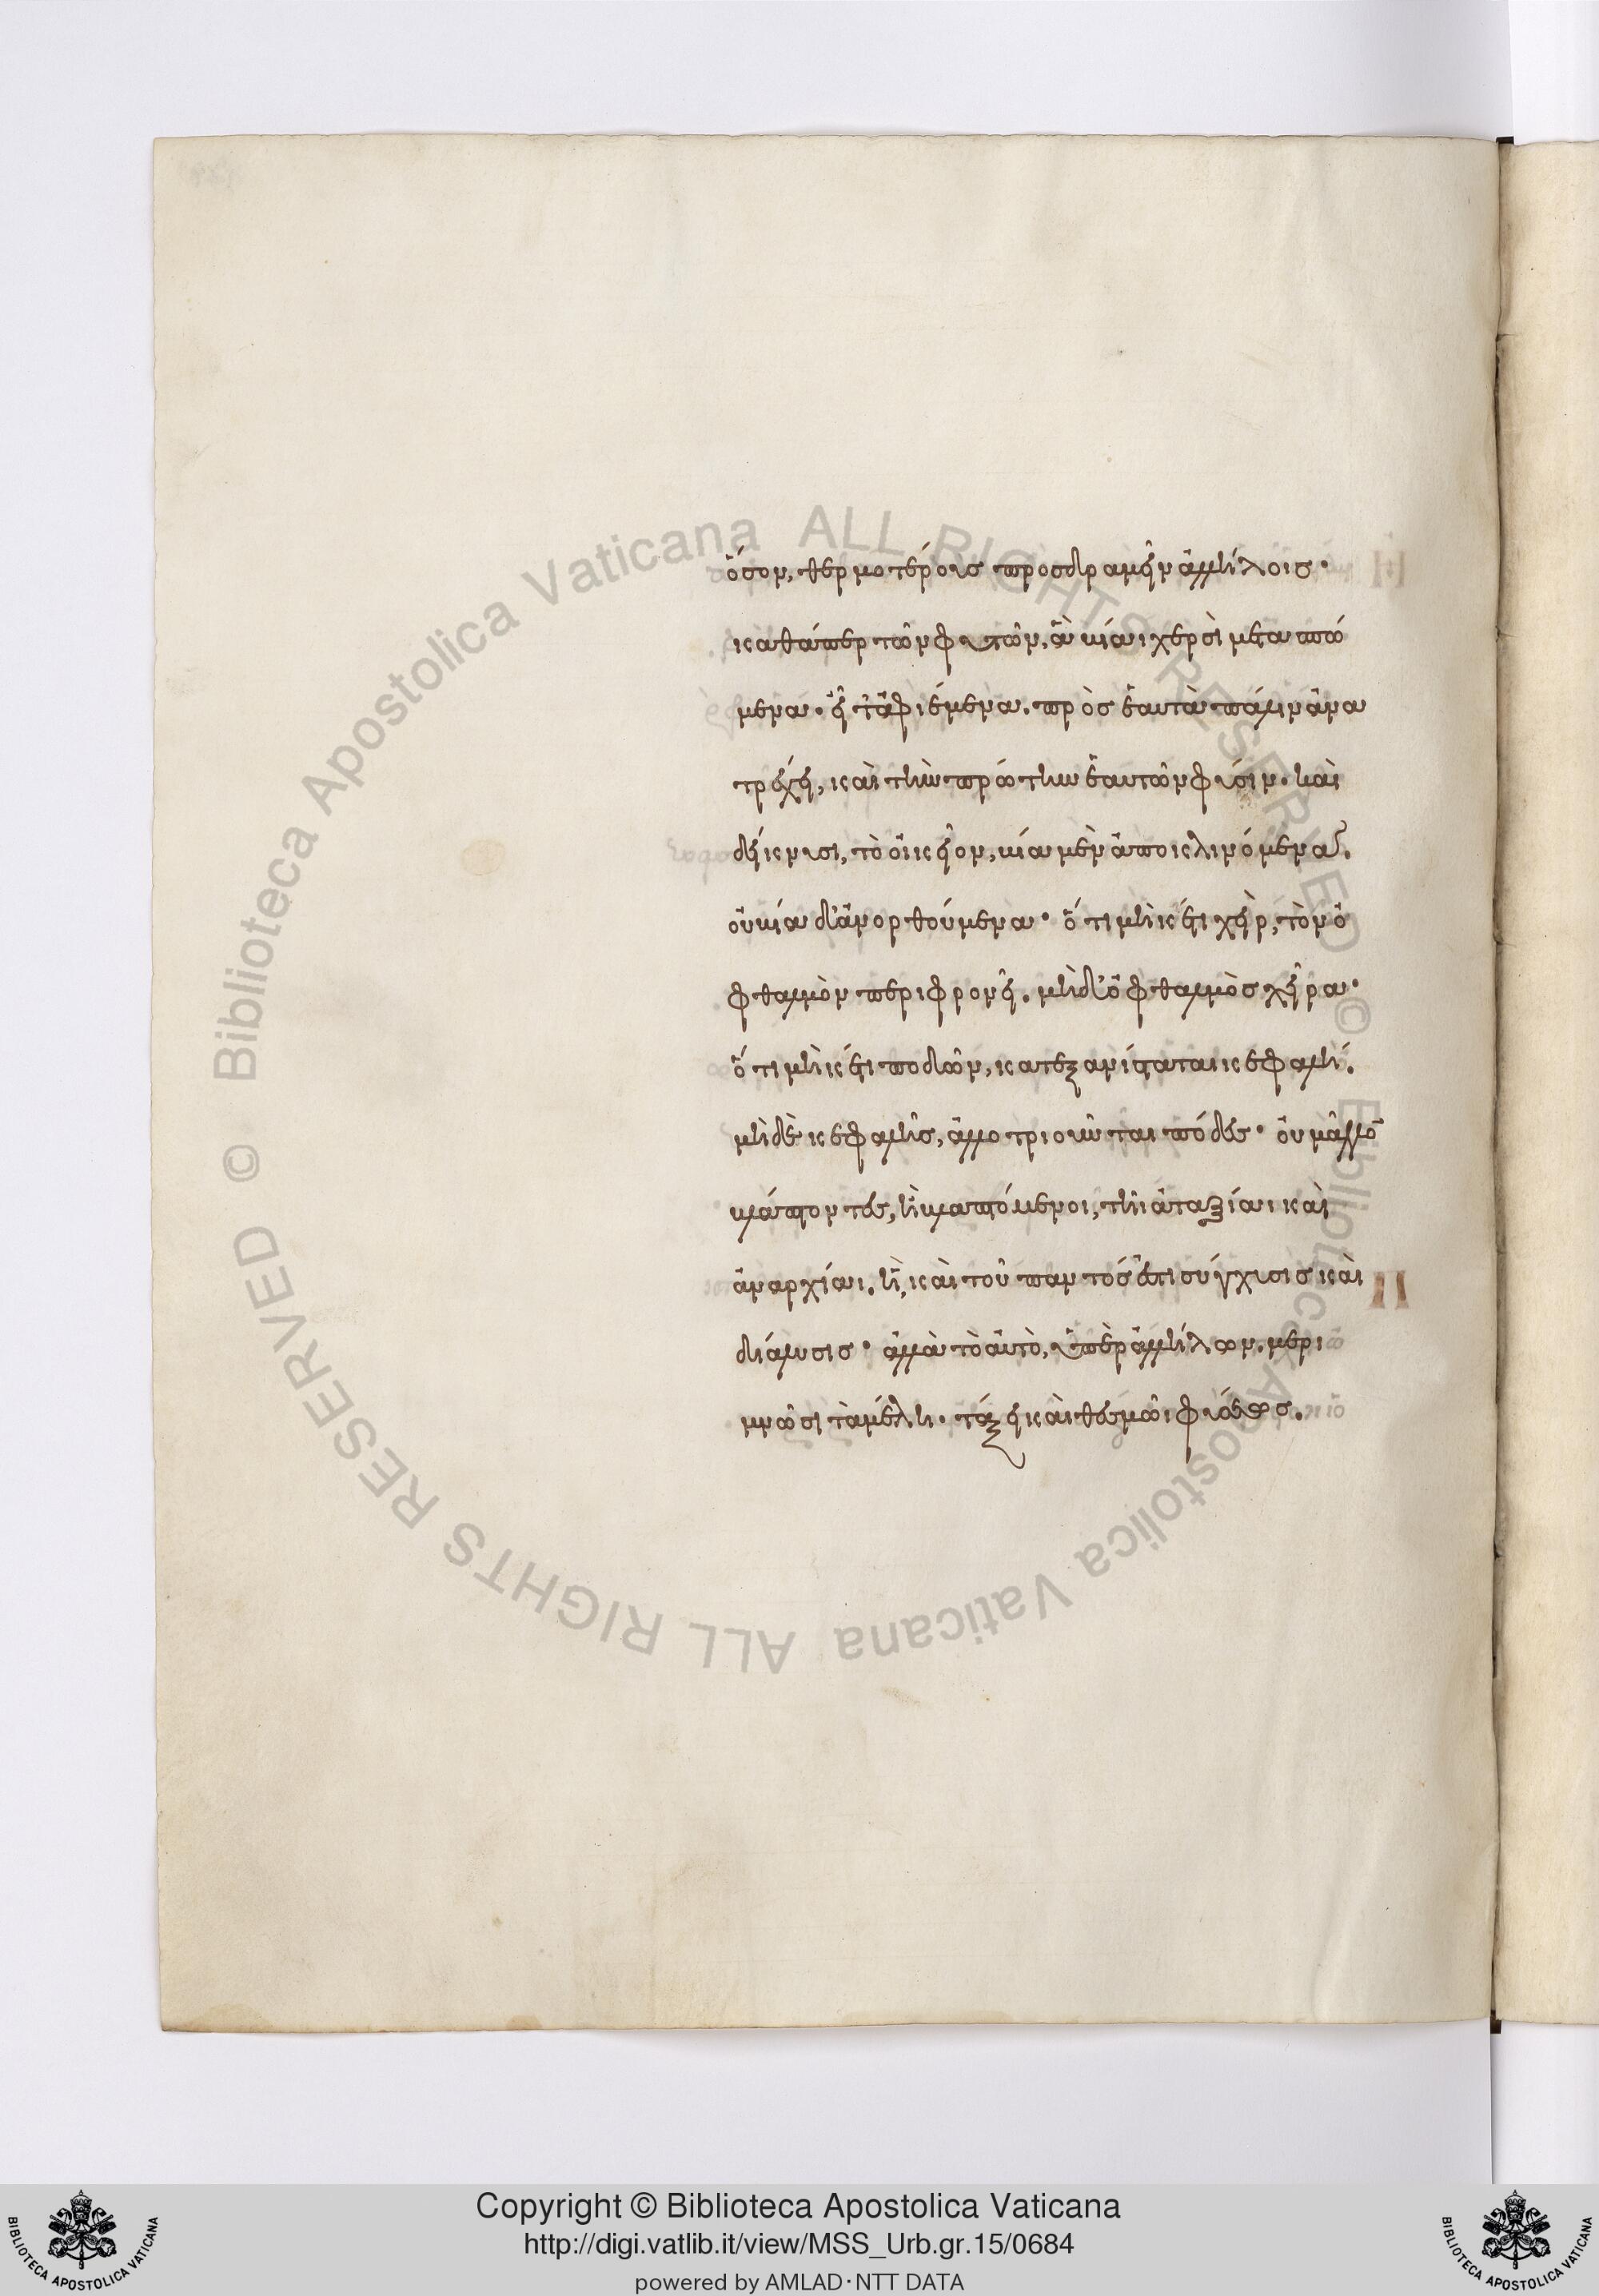 ὅσον, θερμοτέροις προσδραμεῖν ἀλλήλοις·
καθάπερ τῶν φυτῶν, ἃ βίαι χερσὶ μετασπώ
μενα· εἶτ' ἀφιέμενα. πρὸς ἑαυτὰ πάλιν ἀνα
τρέχει, καὶ τὴν πρώτην ἑαυτῶν φύσιν. καὶ
δείκνυσι, τὸ οἰκεῖον, βία μὲν ἀποκλινόμενα.
οὐ βία δ' ἀνορθούμενα· ὅτι μηκέτι χεὶρ, τὸν ὀ
φθαλμὸν περιφρονεῖ. μὴδ' ὀφθαλμὸς χεῖρα·
ὅτι μηκέτι ποδῶν, κατεξανίσταται κεφαλή.
μὴδὲ κεφαλῆς, ἀλλοτριοῦνται πόδες· οὐ μᾶλλον
βλάπτοντες, ἢ βλαπτόμενοι, τῆι ἀταξίαι καὶ
ἀναρχίαι. ἢ, καὶ τοῦ παντός ἐστι σύγχυσις καὶ
διάλυσις· ἀλλὰ τὸ αὐτὸ, ὑπὲρ ἀλλήλων. μερι
μνῶσι τὰ μέλη. τάξει καὶ θεσμῶι φύσεως.
Copyright © Biblioteca Apostolica Vaticana
http://digi.vatlib.it/view/MSS_Urb.gr.15/0684
powered by AMLAD·NTT DATA
BIBLIOTECA APOSTOLICA VATICANA
BIBLIOTECA APOSTOLICA VATICANA
© Biblioteca Apostolica Vaticana ALL RIGHTS RESERVED
© Biblioteca Apostolica Vaticana ALL RIGHTS RESERVED